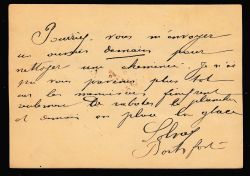 Pourriez vous m'envoyer
un ouvrier demain pour
nettoyer une cheminée. Je n'ai
pu vous prévenir plus tôt
car les menuisiers finissent
de raboter le plancher
et demain on place la glace
Boitsfort